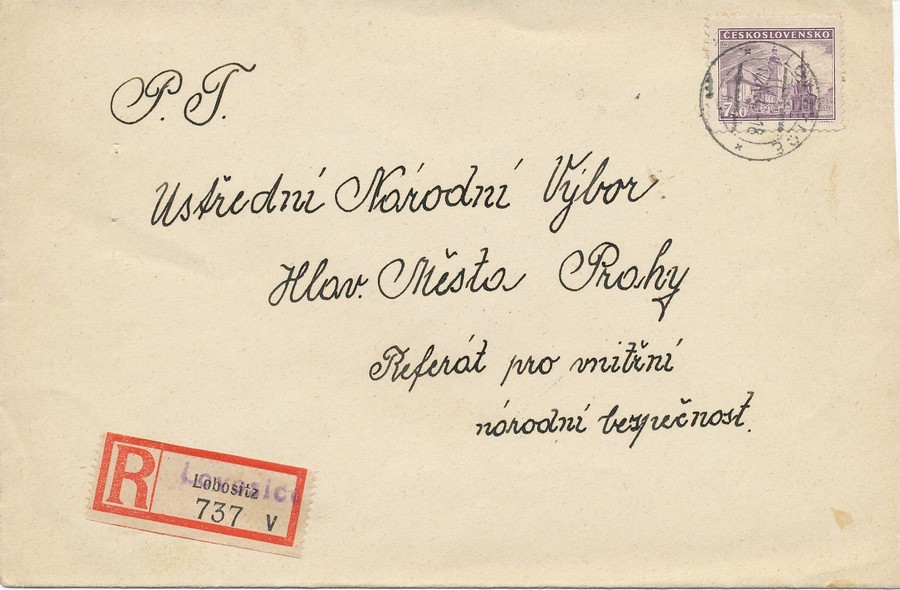 ČESKOSLOVENSKO
7.40
P. T.
Ustřední Národní Výbor
Hlav. Města Prahy
Referát pro vnitřní
národní bezpečnost.
R
Lovosice
Lobositz
737 V